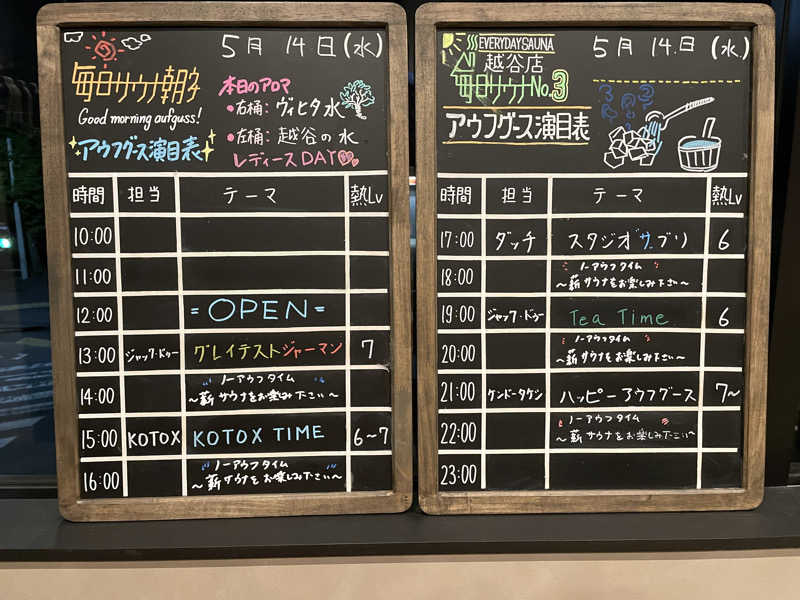 5月 14日(水)
毎日サウナ朝夕
Good morning aufguss!
アウフグース演目表
本日のアロマ
•右桶: ヴィヒタ水
•左桶: 越谷の水
レディースDAY
時間 担当 テーマ 熱Lv
10:00
11:00
12:00 =OPEN=
13:00 ジャック・ドゥー グレイテストジャーマン 7
14:00 ノーアウフタイム
～薪サウナをお楽しみ下さい～
15:00 KOTOX KOTOX TIME 6~7
16:00 ノーアウフタイム
～薪サウナをお楽しみ下さい～
EVERYDAY SAUNA
越谷店
毎日サウナNo.3
5月 14.日 (水.)
アウフグース演目表
時間 担当 テーマ 熱Lv
17:00 ダッチ スタジオサ.ブリ 6
18:00 ノーアウフタイム
～薪サウナをお楽しみ下さい～
19:00 ジャック・ドゥー Tea Time 6
20:00 ノーアウフタイム
～薪サウナをお楽しみ下さい～
21:00 ケンドータケシ ハッピーアウフグース 7~
22:00 ノーアウフタイム
～薪サウナをお楽しみ下さい～
23:00